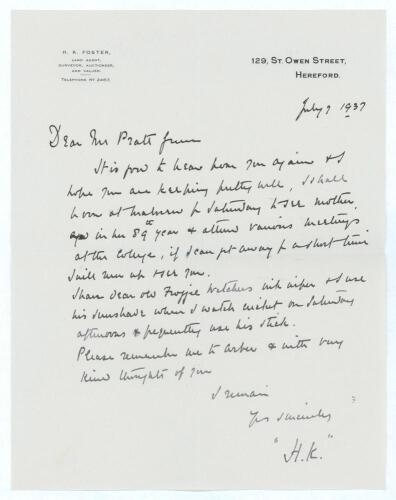 H. K. FOSTER,
LAND AGENT,
SURVEYOR, AUCTIONEER,
AND VALUER.
TELEPHONE Nº 2487.
129, ST. OWEN STREET,
HEREFORD.
July 7 1937
Dear Mr Pratt Green
It is good to hear from you again & I
hope you are keeping pretty well, I shall
be over at Malvern on Saturday to see mother,
now in her 89th year & attend various meetings
at the College, if I can get away for a short time
I will run up & see you.
I have dear old Froggie & use
his sunshade when I watch cricket on Saturday
afternoons & frequently use his stick.
Please remember me to & with very
kind thoughts of you
I remain
Yrs sincerely
"H.K."